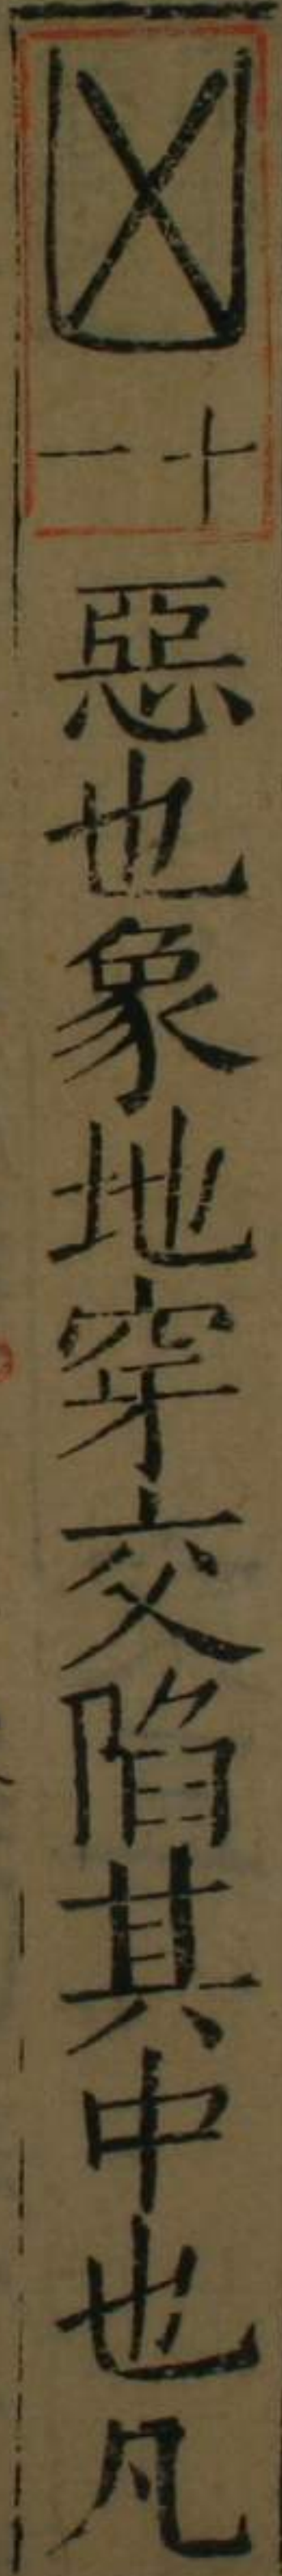 凶十一惡也象地穿交陷其中也凡